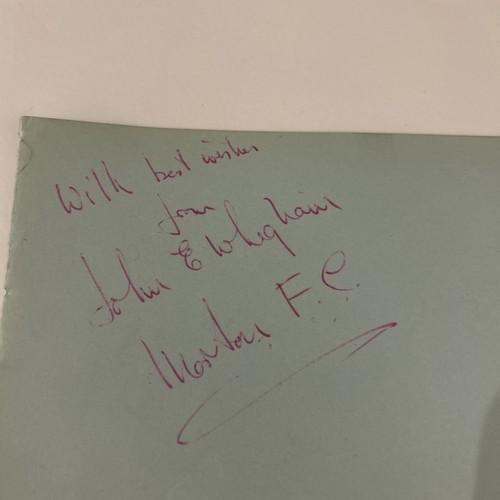 With best wishes
from
John E Whigham
Morton F.C.